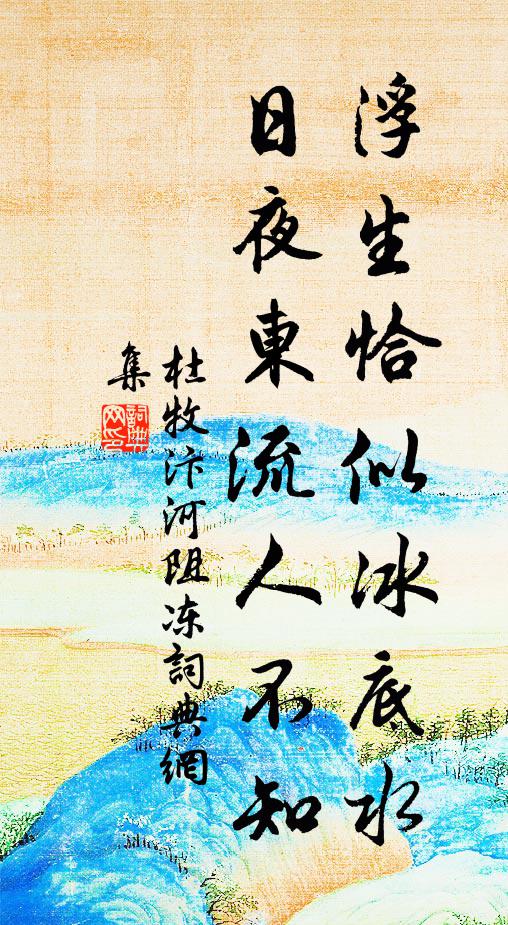 浮生恰似冰底水
日夜東流人不知
杜牧汴河阻冻詞典網
集
詞典
网印